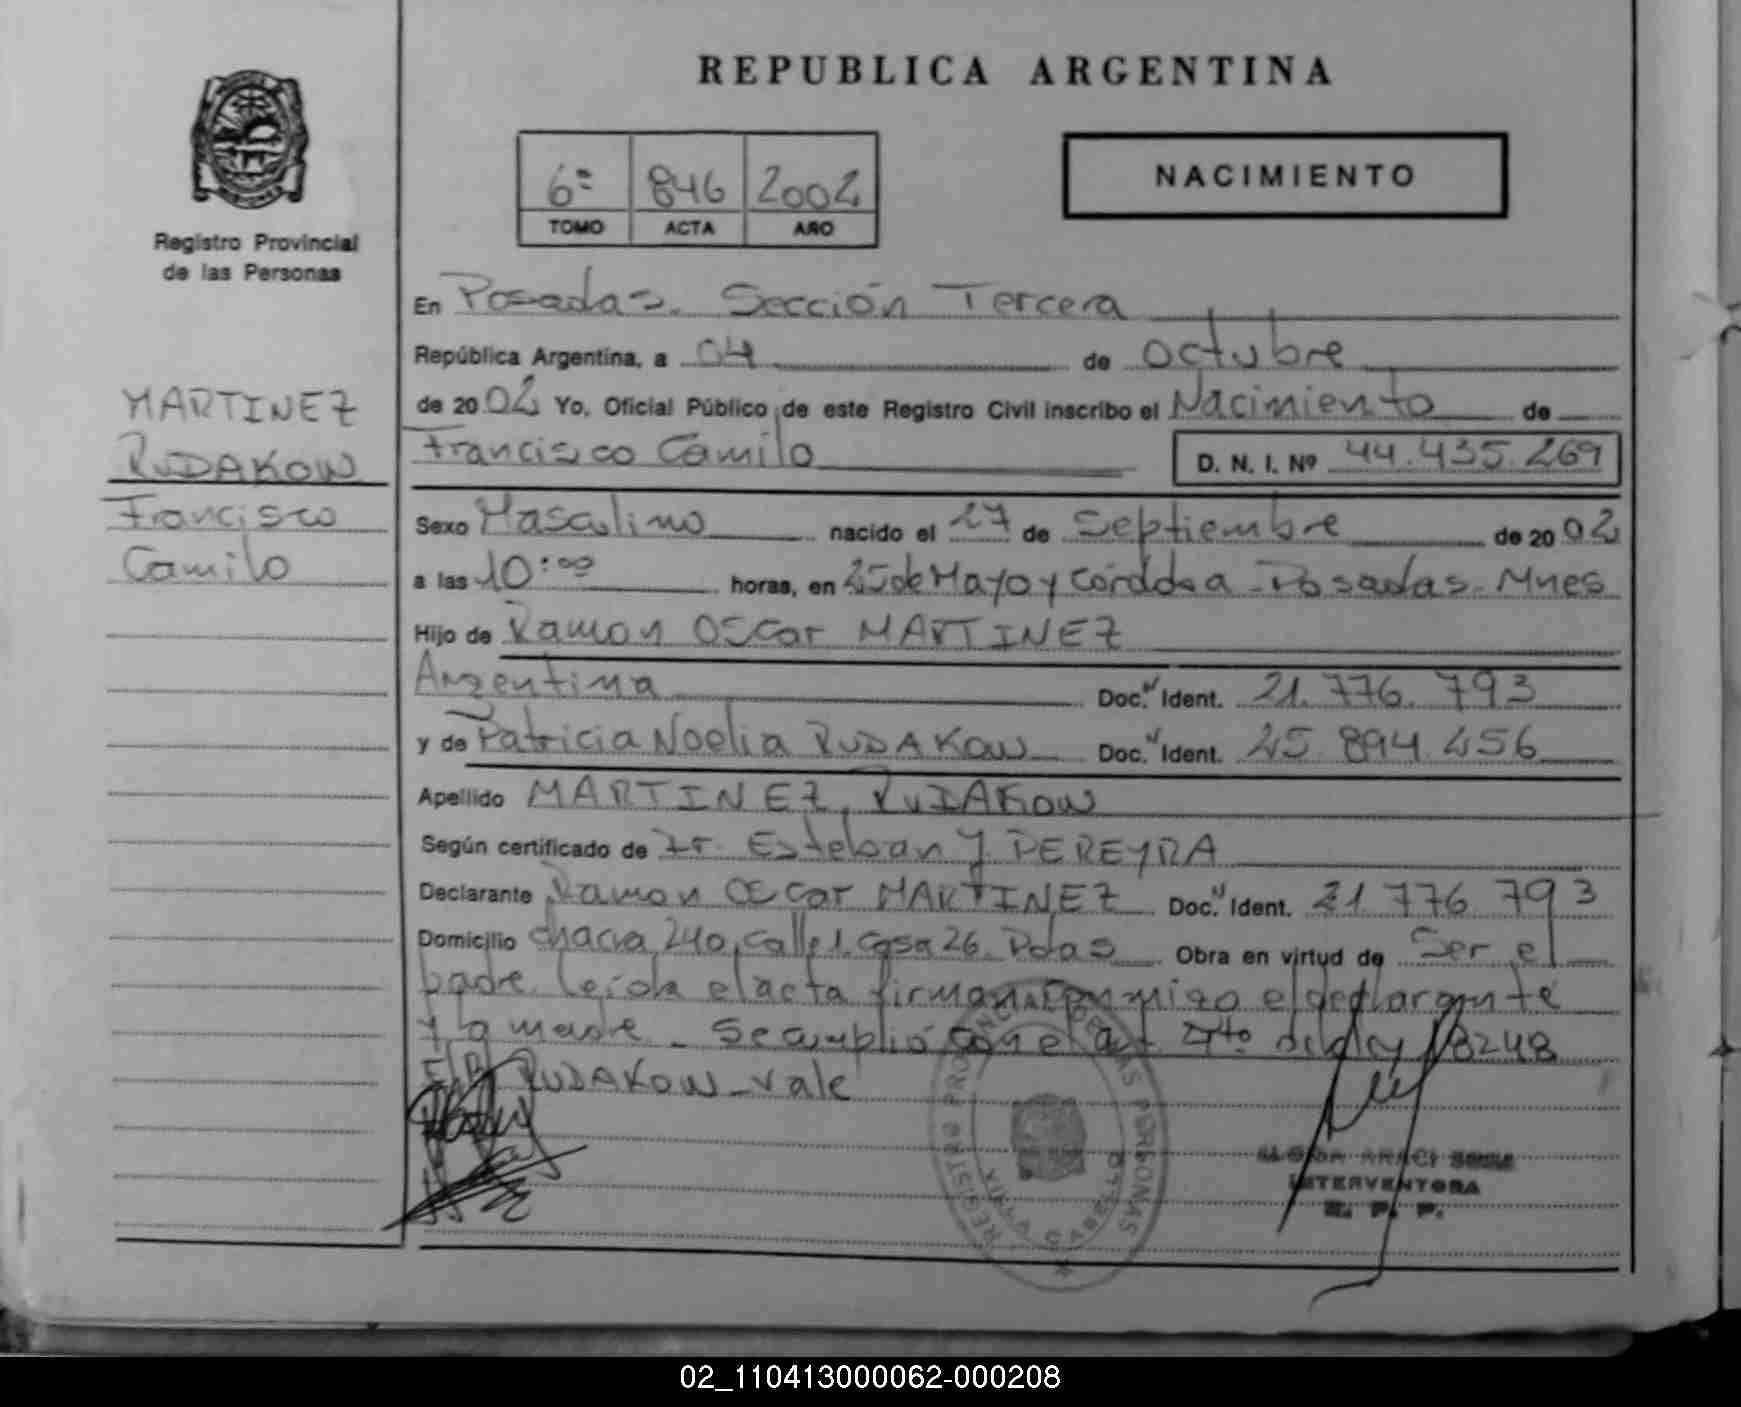 REPUBLICA ARGENTINA
Registro Provincial
de las Personas
6º 846 2002
TOMO ACTA AÑO
NACIMIENTO
MARTINEZ
RUDAKOW
Francisco
Camilo
En Posadas. Sección Tercera
República Argentina, a 04 de octubre
de 2002 Yo, Oficial Público de este Registro Civil inscribo el Nacimiento de
Francisco Camilo D. N. I. Nº 44.435.269
Sexo Masculino nacido el 27 de Septiembre de 2002
a las 10:00 horas, en 25 de Mayo y Córdoba - Posadas - Mnes
Hijo de Ramon Oscar MARTINEZ
Argentina Doc. Ident. 21.776.793
y de Patricia Noelia RUDAKOW Doc. Ident. 25.894.456
Apellido MARTINEZ RUDAKOW
Según certificado de Dr. Esteban J. PEREYRA
Declarante Ramon Oscar MARTINEZ Doc. Ident. 21.776.793
Domicilio chacra 240, calle 1. casa 26. Pdas Obra en virtud de Ser el
padre. Leída el acta firman conmigo el declarante
y la madre - Se cumplió con el art 4to de la ley 18248
RUDAKOW - vale
REGISTRO PROVINCIAL DE LAS PERSONAS
INTERVENTORA
R. P. P.
02_110413000062-000208